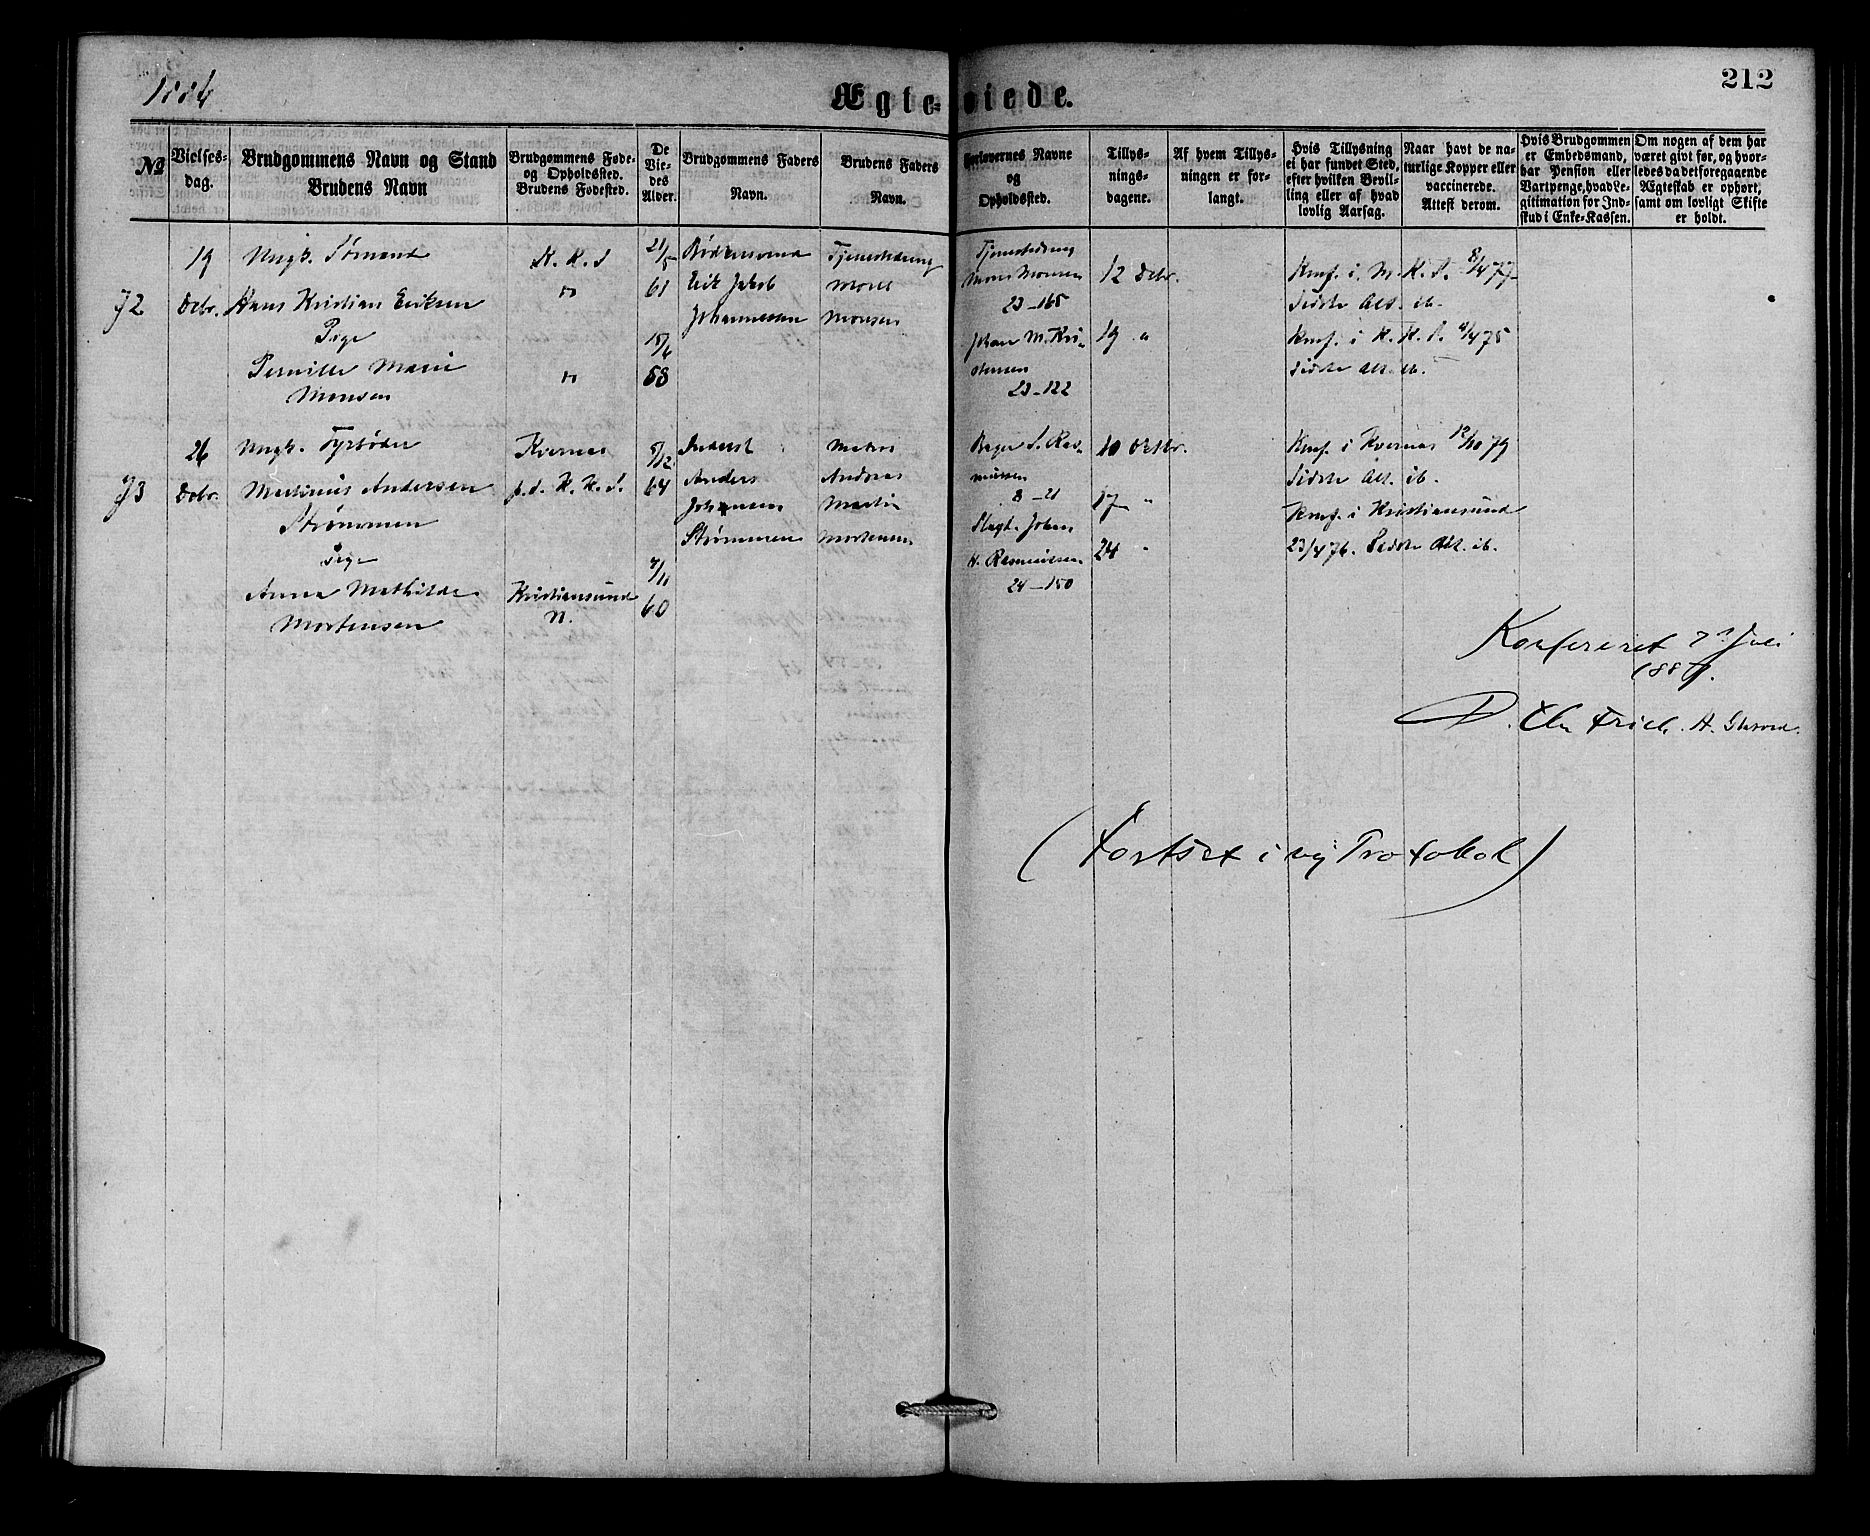 1886
Ægteviede.
212
No
Vielses-
dag.
Brudgommens Navn og Stand
Brudens Navn
Brudgommens Føde-
og Opholdssted.
Brudens Fødested.
De
Vie-
des
Alder.
Brudgommens Faders
Navn.
Brudens Faders
Navn.
Forlovernes Navne
og
Opholdssted.
Tillys-
nings-
dagene.
Af hvem Tillys-
ningen er for-
langt.
Hvis Tillysning
ei har fundet Sted,
efter hvilken Bevil-
ling eller af hvad
lovlig Aarsag.
Naar havt de na-
turlige Kopper eller
vaccinerede.
Attest derom.
Hvis Brudgommen
er Embedsmand,
har Pension eller
Vartpenge, hvad Le-
gitimation for Ind-
skud i Enke-Kassen.
Om nogen af dem har
været givt før, og hvor-
ledes da det foregaaende
Ægteskab er ophørt,
samt om lovligt Skifte
er holdt.
72
19
Decbr.
Ungk. Sømand
Hans Kristian Eriksen
Pige
Pernille Marie
Monsen
K. K. S
"
"
21/5
61
15/6
58
Erik Jakob
Johannessen
Tjenestedreng
Mons
Monsen
Tjenestedreng
Mons Monsen
23-165
Johan M. Kri-
stensen
23-122
12 Decbr.
19 "
Konf. i N. K. S. 8/4 77
Sidste Alt. ib.
Konf. i K. K. S. 4/4 75
Sidste Alt. ib.
73
26
Decbr.
Ungk. Fyrbøder
Martinus Andersen
Strømmen
Pige
Anna Mathilde
Mortensen
Kvernes
p. d. K. K. S.
Kristiansund
N.
5/12
64
4/11
60
Inderst
Anders
Johansen
Strømmen
Matros
Andreas
Martin
Mortensen
Bager S. Ras-
mussen
8-21
Slagt. Johan
H. Rasmussen
24-150
10 Octbr.
17 "
24 "
Konf. i Kvernes 12/10 79
Sidste Alt. ib.
Konf. i Kristiansund
23/4 76. Sidste Alt. ib.
Konfereret 7de Juli
1887.
(Fortsat i ny Protokol)